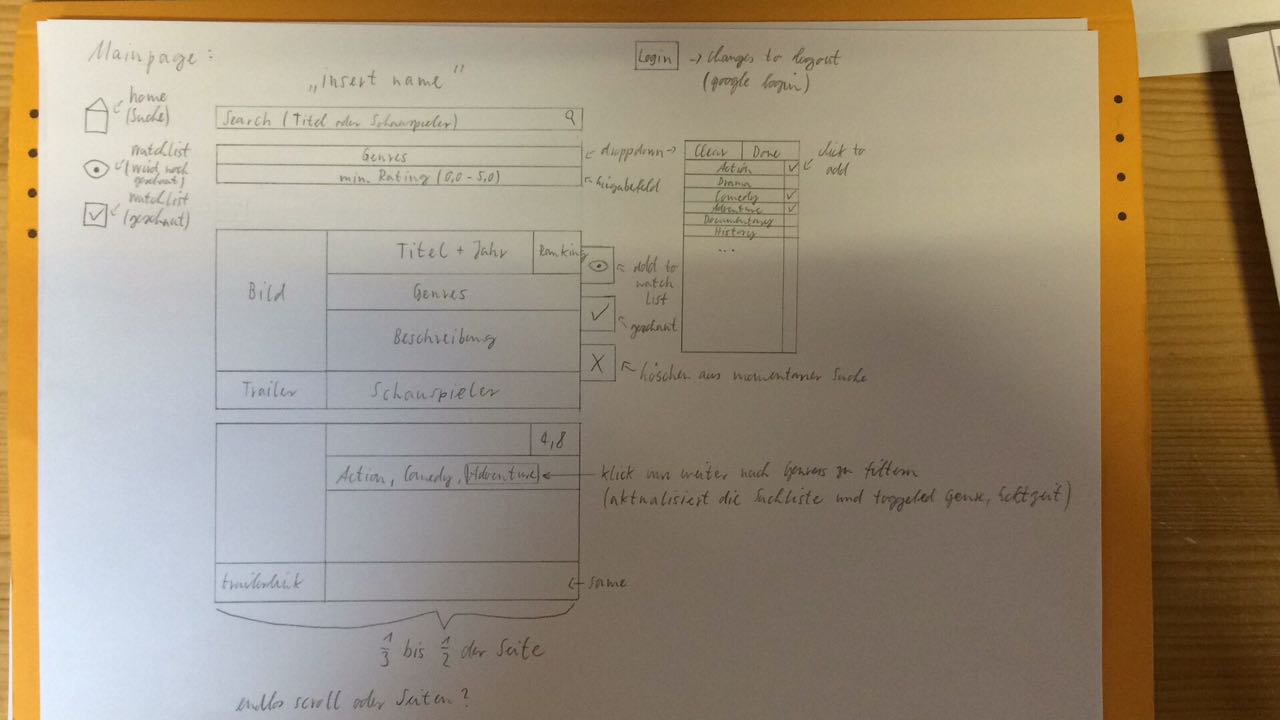 Mainpage:
„insert name"
Login → changes to logout
(google login)
home
(Suche)
Search (Titel oder Schauspieler)
watchlist
(wird noch
geschaut)
Genres
← dropdown →
min. Rating (0,0 - 5,0)
← Eingabefeld
watchlist
(geschaut)
Clear Done
Action ✓
← click to
add
Drama
Comedy ✓
Adventure ✓
Documentary
History
...
Bild
Titel + Jahr
Ranking
Genres
Beschreibung
Trailer
Schauspieler
← add to
watch
list
✓
← geschaut
X
← löschen aus momentaner Suche
4,8
Action, Comedy, Adventure
← klick um weiter nach Genres zu filtern
(aktualisiert die Suchliste und toggeled Genre, Echtzeit)
trailerlink
← same
1/3 bis 1/2 der Seite
endlos scroll oder Seiten?